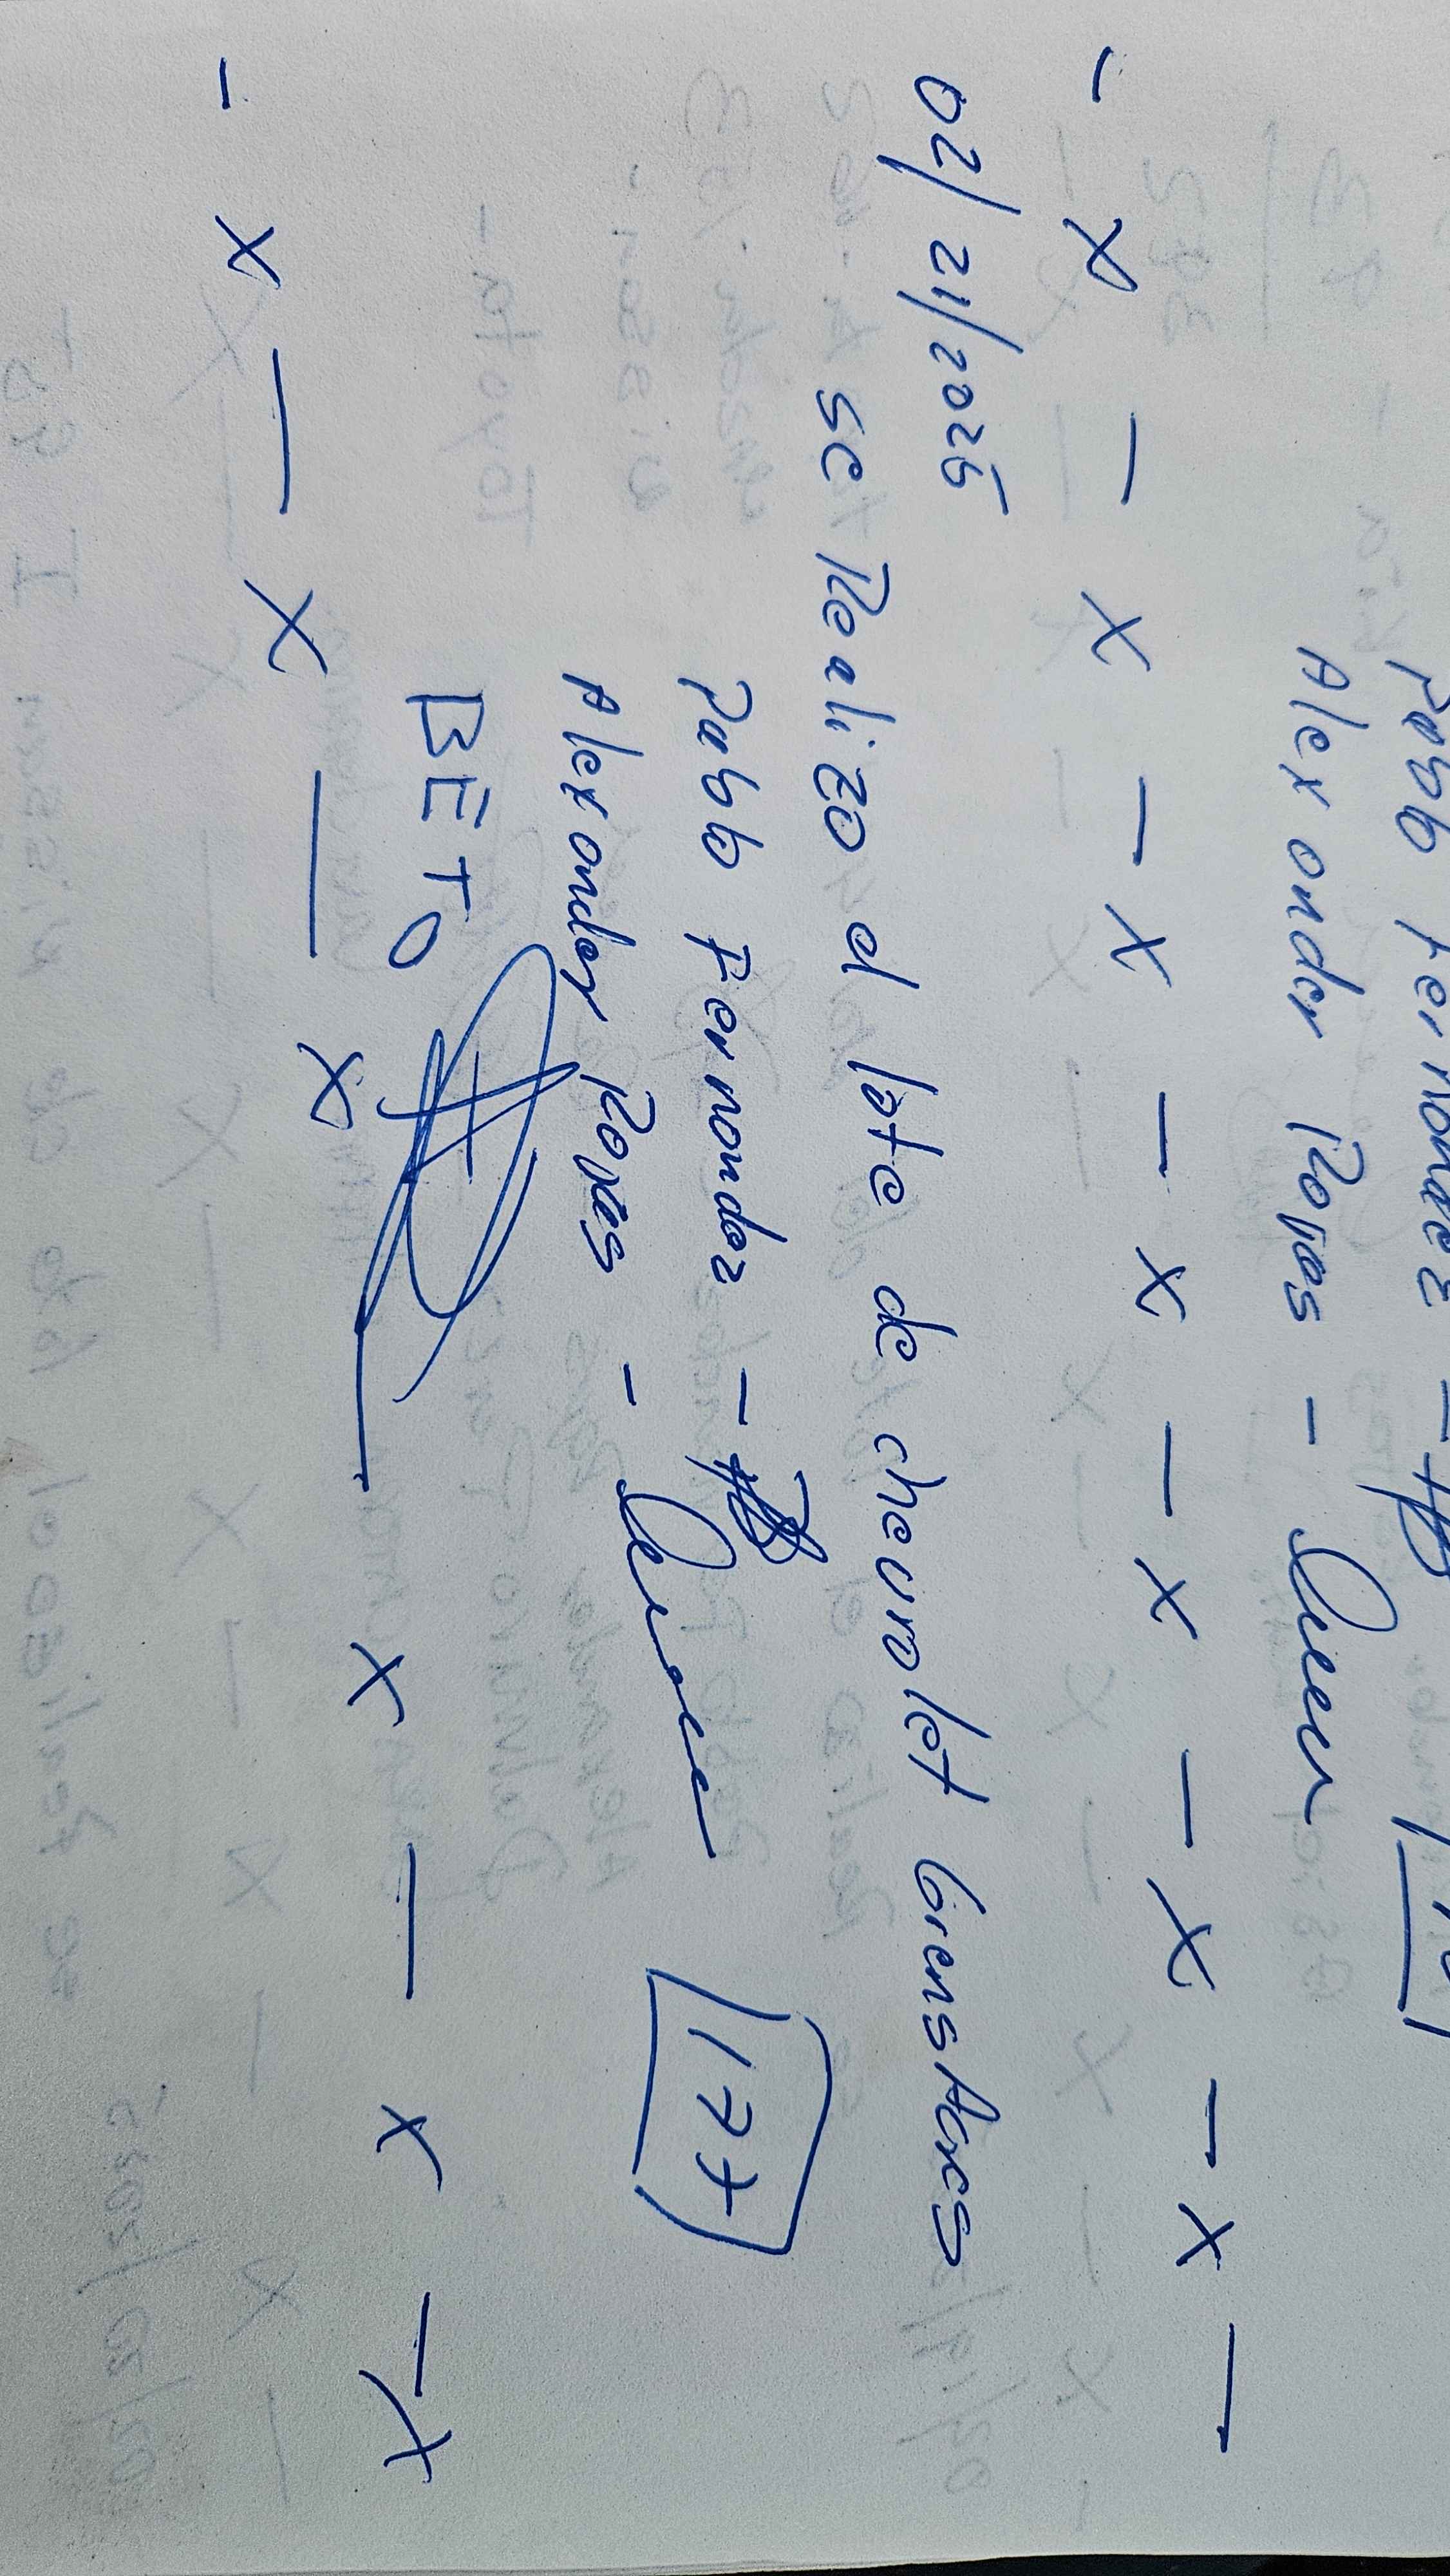 Pabb Fernandez -
Alexander Rojas -
- x - x - x - x - x - x - x - x -
02/21/2025
se Realizo el lote de chevrolet Griens Acres
Pabb Fernandez -
Alexander Rojas -
177
BETO
- x - x - x - x - x - x